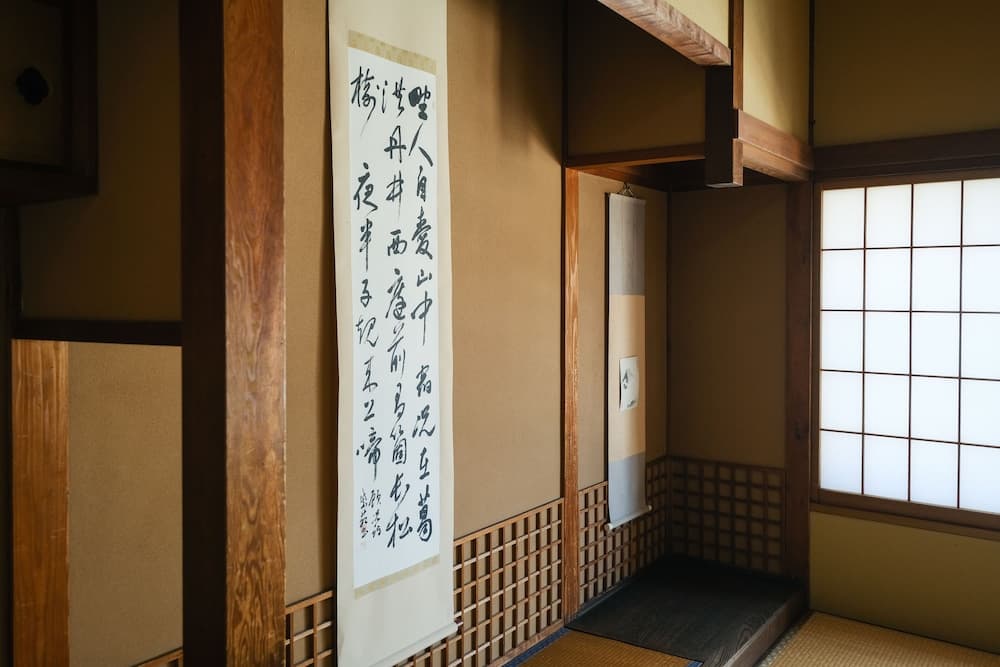 野人自愛山中宿况在葛
洪丹井西庭前有箇長松
樹夜半子規来上啼
顧况詩